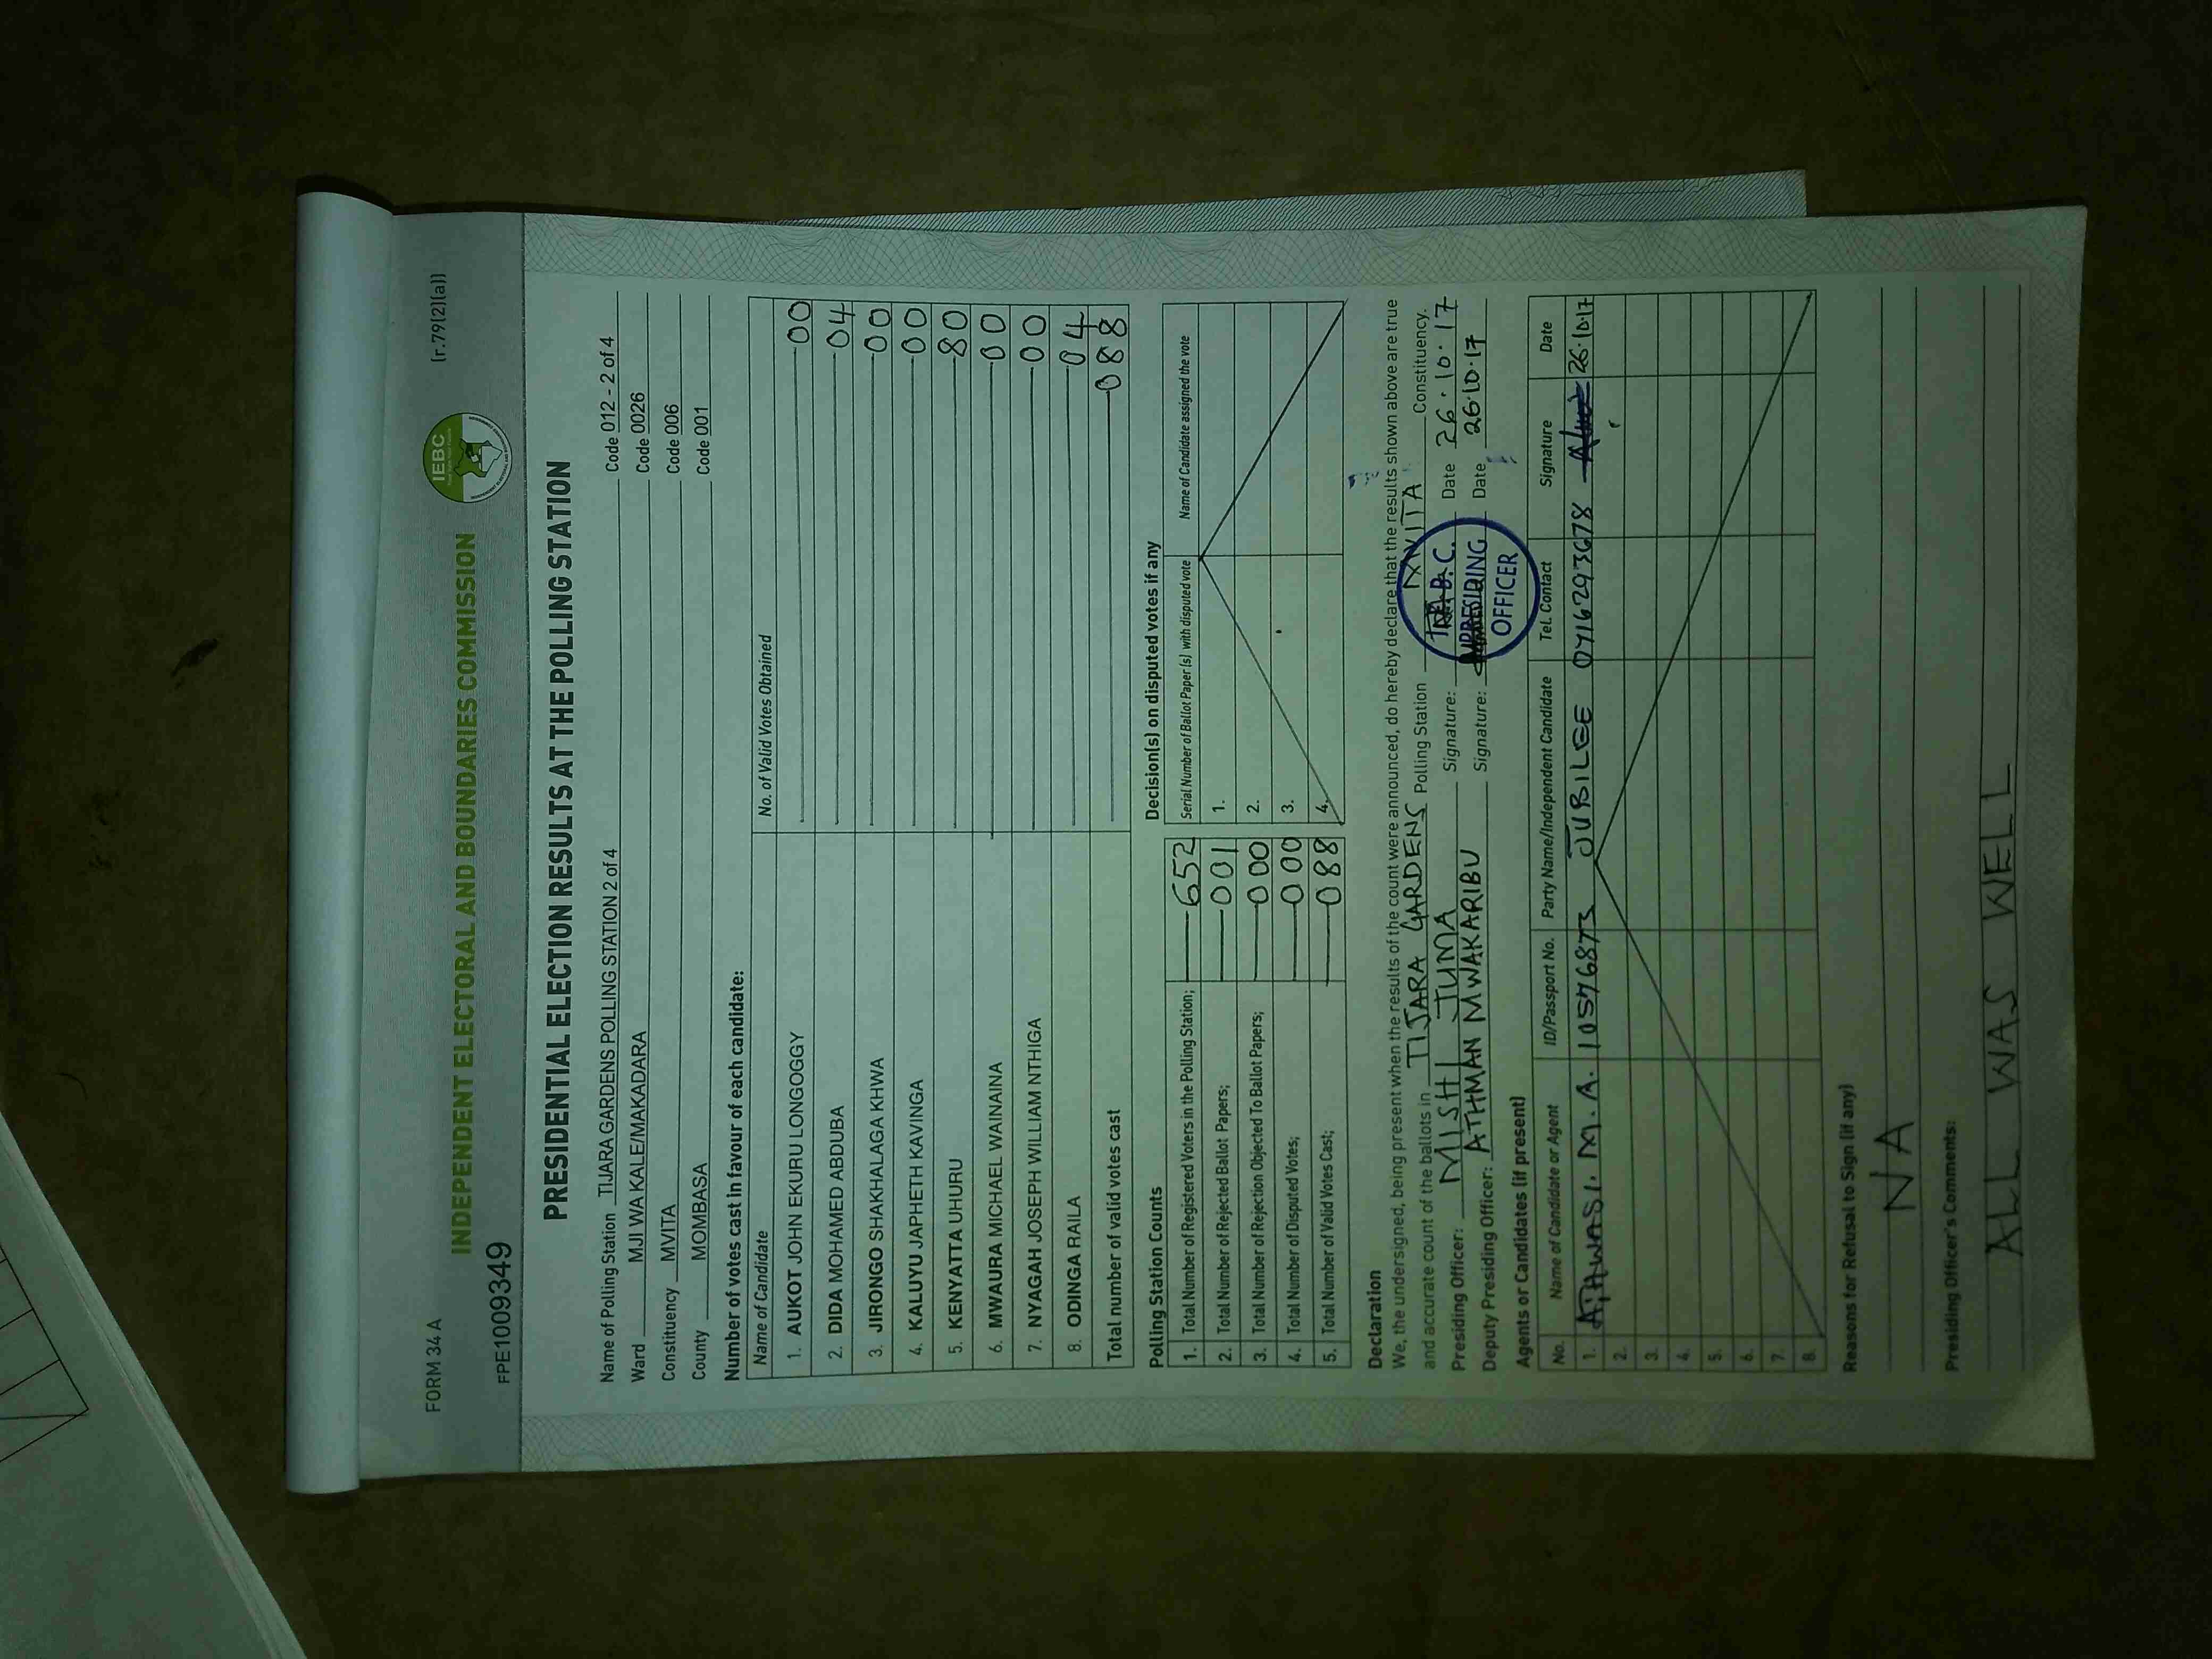 FORM 34 A
(r.79(2)(a))
IEBC
INDEPENDENT ELECTORAL AND BOUNDARIES COMMISSION
FPE1009349
PRESIDENTIAL ELECTION RESULTS AT THE POLLING STATION
Name of Polling Station TIJARA GARDENS POLLING STATION 2 of 4 Code 012 - 2 of 4
Ward MJI WA KALE/MAKADARA Code 0026
Constituency MVITA Code 006
County MOMBASA Code 001
Number of votes cast in favour of each candidate:
Name of Candidate No. of Valid Votes Obtained
1. AUKOT JOHN EKURU LONGOGGY 00
2. DIDA MOHAMED ABDUBA 04
3. JIRONGO SHAKHALAGA KHWA 00
4. KALUYU JAPHETH KAVINGA 00
5. KENYATTA UHURU 80
6. MWAURA MICHAEL WAINAINA 00
7. NYAGAH JOSEPH WILLIAM NTHIGA 00
8. ODINGA RAILA 04
Total number of valid votes cast 088
Polling Station Counts
1. Total Number of Registered Voters in the Polling Station; 652
2. Total Number of Rejected Ballot Papers; 001
3. Total Number of Rejection Objected To Ballot Papers; 000
4. Total Number of Disputed Votes; 000
5. Total Number of Valid Votes Cast; 088
Decision(s) on disputed votes if any
Serial Number of Ballot Paper(s) with disputed vote Name of Candidate assigned the vote
1.
2.
3.
4.
Declaration
We, the undersigned, being present when the results of the count were announced, do hereby declare that the results shown above are true
and accurate count of the ballots in TIJARA GARDENS Polling Station MVITA Constituency.
Presiding Officer: MISHI JUMA Signature: Date 26.10.17
Deputy Presiding Officer: ATHMAN MWAKARIBU Signature: Date 26.10.17
PRESIDING
OFFICER
Agents or Candidates (if present)
No. Name of Candidate or Agent ID/Passport No. Party Name/Independent Candidate Tel. Contact Signature Date
1. M.A. JUBILEE 0716293678 26.10.17
2.
3.
4.
5.
6.
7.
8.
Reasons for Refusal to Sign (if any)
NA
Presiding Officer's Comments:
ALL WAS WELL